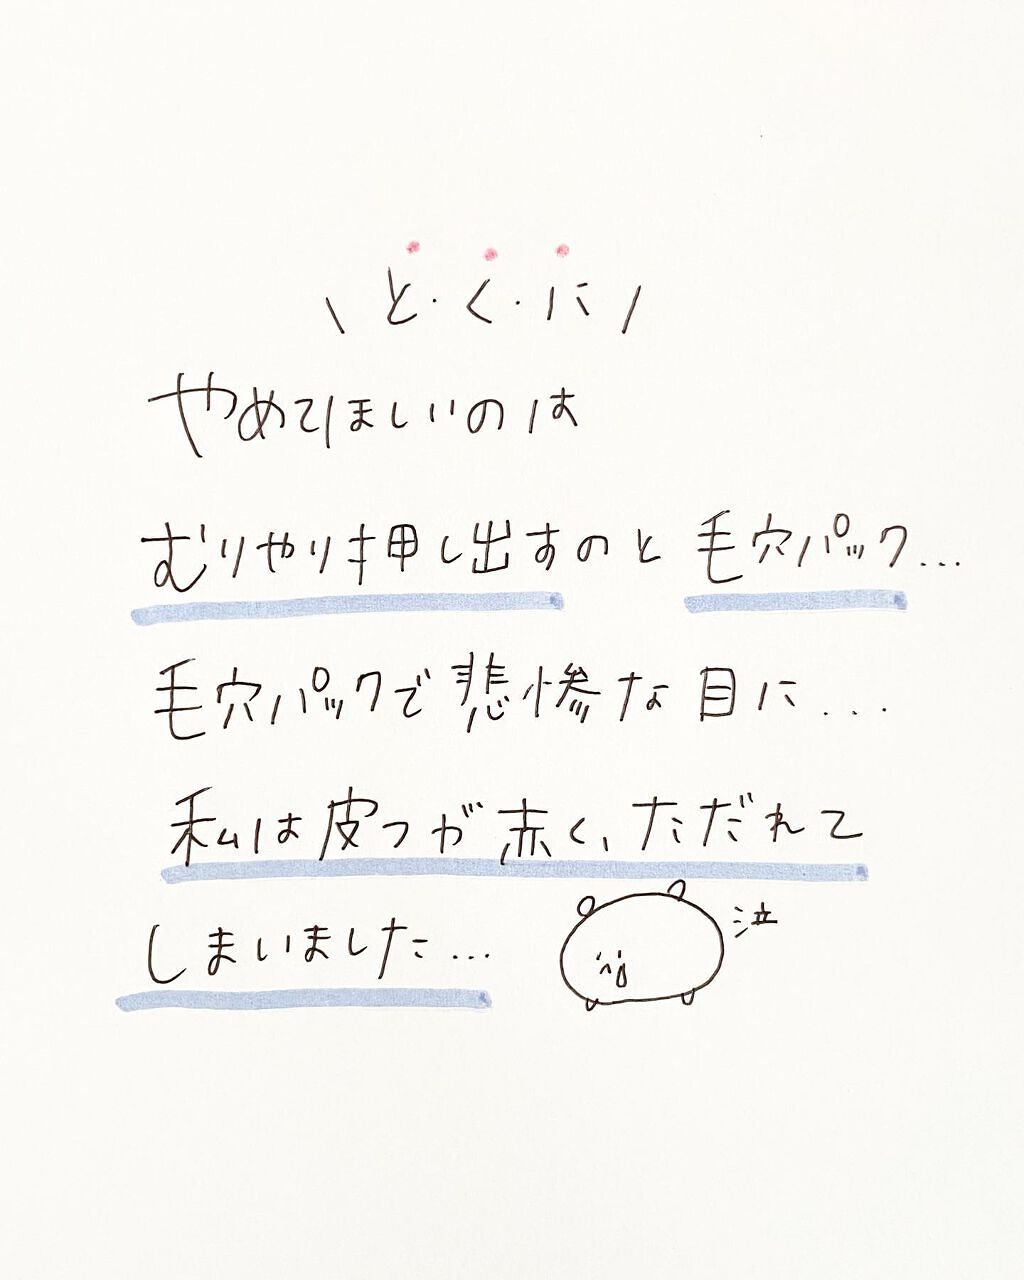 \ と・く・に /
やめてほしいのは
むりやり押し出すのと 毛穴パック...
毛穴パックで悲惨な目に...
私は皮フが赤く、ただれて
しまいました...
泣